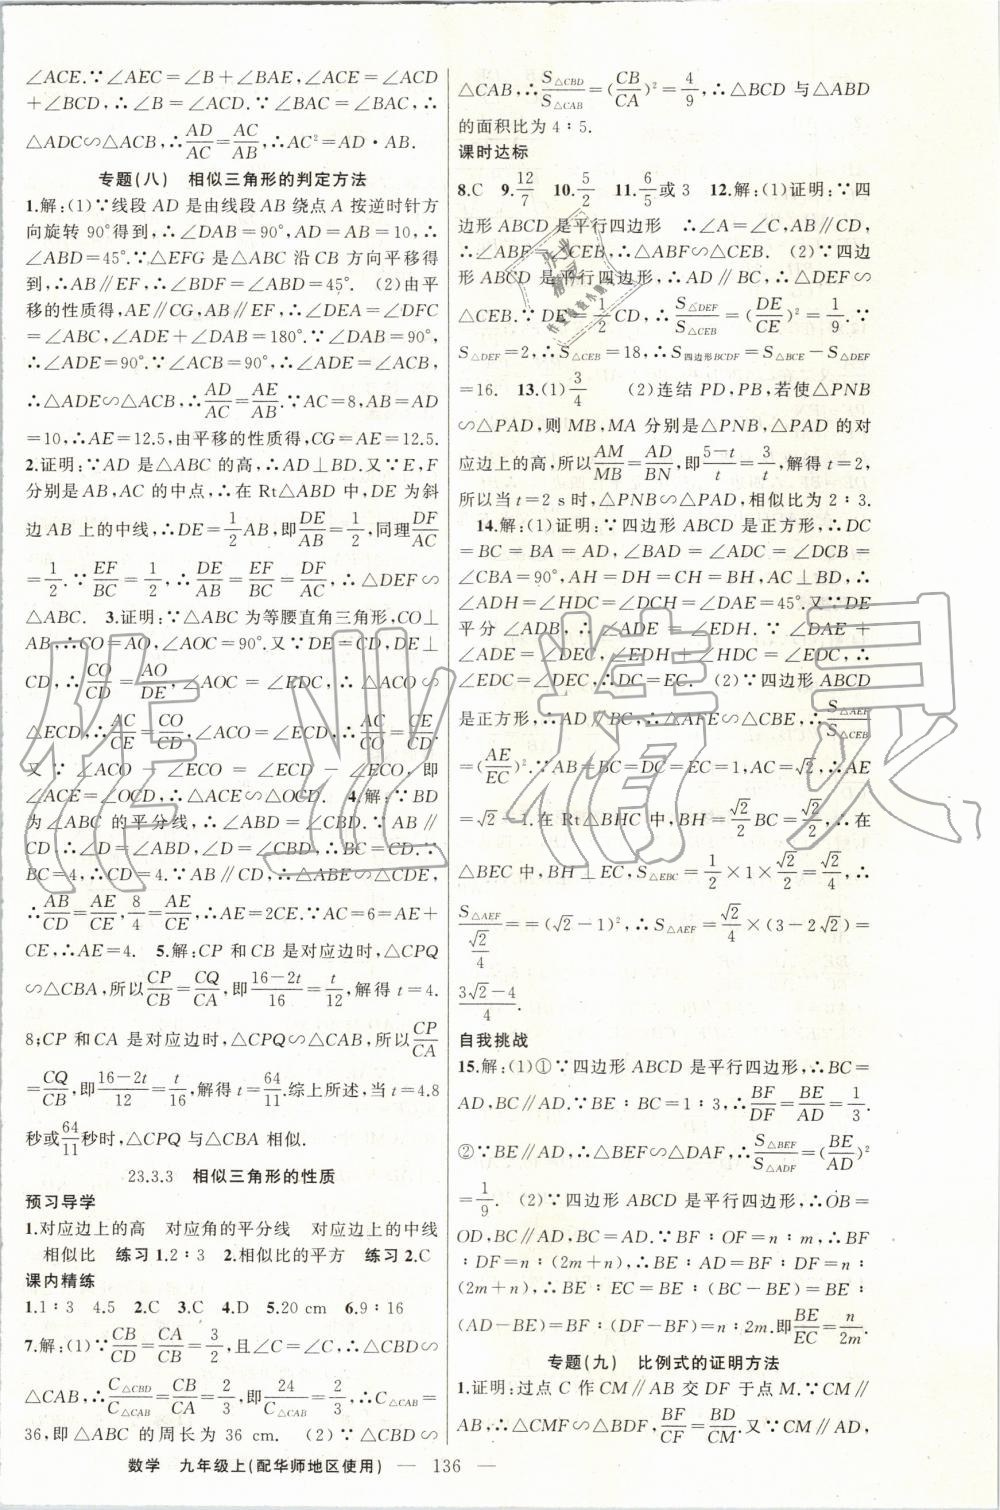 ∠ACE.∵∠AEC=∠B+∠BAE,∠ACE=∠ACD
+∠BCD,∴∠B=∠ACD.∵∠BAC=∠BAC,∴
△ADC∽△ACB,∴AD/AC=AC/AB,∴AC²=AD·AB.
专题(八) 相似三角形的判定方法
1.解:(1)∵线段AD是由线段AB绕点A按逆时针方
向旋转90°得到,∴∠DAB=90°,AD=AB=10,∴
∠ABD=45°.∵△EFG是△ABC沿CB方向平移得
到,∴AB∥EF,∴∠BDF=∠ABD=45°. (2)由平
移的性质得,AE∥CG,AB∥EF,∴∠DEA=∠DFC
=∠ABC,∠ADE+∠DAB=180°.∵∠DAB=90°,
∴∠ADE=90°.∵∠ACB=90°,∴∠ADE=∠ACB,
∴△ADE∽△ACB,∴AD/AC=AE/AB.∵AC=8,AB=AD
=10,∴AE=12.5,由平移的性质得,CG=AE=12.5.
2.证明:∵AD是△ABC的高,∴AD⊥BD.又∵E,F
分别是AB,AC的中点,∴在Rt△ABD中,DE为斜
边AB上的中线,∴DE=1/2AB,即DE/AB=1/2,同理DF/AC
=1/2.∵EF/BC=1/2,∴DE/AB=EF/BC=DF/AC,∴△DEF∽
△ABC. 3.证明:∵△ABC为等腰直角三角形,CO⊥
AB,∴CO=AO,∠AOC=90°.又∵DE=CD,DE⊥
CD,∴CO/CD=AO/DE,∠AOC=∠EDC,∴△ACO∽
△ECD,∴AC/CE=CO/CD,∠ACO=∠ECD,∴AC/CO=CE/CD.
又∵∠ACO-∠ECO=∠ECD-∠ECO,即
∠ACE=∠OCD,∴△ACE∽△OCD. 4.解:∵BD
为∠ABC的平分线,∴∠ABD=∠CBD.∵AB∥
CD,∴∠D=∠ABD,∠D=∠CBD,∴BC=CD.∵
BC=4,∴CD=4.∵AB∥CD,∴△ABE∽△CDE,
∴AB/CD=AE/CE,8/4=AE/CE,∴AE=2CE.∵AC=6=AE+
CE,∴AE=4. 5.解:CP和CB是对应边时,△CPQ
∽△CBA,所以CP/CB=CQ/CA,即16-2t/16=t/12,解得t=4.
8;CP和CA是对应边时,△CPQ∽△CAB,所以CP/CA
=CQ/CB,即16-2t/12=t/16,解得t=64/11.综上所述,当t=4.8
秒或64/11秒时,△CPQ与△CBA相似.
23.3.3 相似三角形的性质
预习导学
1.对应边上的高 对应角的平分线 对应边上的中线
相似比 练习1.2∶3 2.相似比的平方 练习2.C
课内精练
1.1∶3 4.5 2.C 3.C 4.D 5.20 cm 6.9∶16
7.解:(1)∵CB/CD=CA/CB=3/2,且∠C=∠C,∴△CBD∽
△CAB,∴C△CBD/C△CAB=CB/CA=2/3,即24/C△CAB=2/3,∴C△CAB=
36,即△ABC的周长为36 cm. (2)∵△CBD∽
△CAB,∴S△CBD/S△CAB=(CB/CA)²=4/9,∴△BCD与△ABD
的面积比为4∶5.
课时达标
8.C 9.12/7 10.5/2 11.6/5或3 12.解:(1)证明:∵四
边形ABCD是平行四边形 ∴∠A=∠C,AB∥CD,
∴∠ABF=∠CEB,∴△ABF∽△CEB. (2)∵四边
形ABCD是平行四边形,∴AD∥BC,∴△DEF∽
△CEB.∵DE=1/2CD,∴S△DEF/S△CEB=(DE/CE)²=1/9.∵
S△DEF=2,∴S△CEB=18,∴S四边形BCDF=S△BCE-S△DEF
=16. 13.(1)3/4 (2)连结PD,PB,若使△PNB
∽△PAD,则MB,MA分别是△PNB,△PAD的对
应边上的高,所以AM/MB=AD/BN,即5-t/t=3/t,解得t=2,
所以当t=2 s时,△PNB∽△PAD,相似比为2∶3.
14.解:(1)证明:∵四边形ABCD是正方形,∴DC
=BC=BA=AD,∠BAD=∠ADC=∠DCB=
∠CBA=90°,AH=DH=CH=BH,AC⊥BD,∴
∠ADH=∠HDC=∠DCH=∠DAE=45°.又∵DE
平分∠ADB,∴∠ADE=∠EDH.∵∠DAE+
∠ADE=∠DEC,∠EDH+∠HDC=∠EDC,∴
∠EDC=∠DEC,∴DC=EC. (2)∵四边形ABCD
是正方形,∴AD∥BC,∴△AFE∽△CBE,∴S△AEF/S△CEB
=(AE/EC)².∵AB=BC=DC=EC=1,AC=√2,∴AE
=√2-1.在Rt△BHC中,BH=√2/2BC=√2/2,∴在
△BEC中,BH⊥EC,S△EBC=1/2×1×√2/2=√2/4,∴
S△AEF/(√2/4)=(√2-1)²,∴S△AEF=√2/4×(3-2√2)=
3√2-4/4.
自我挑战
15.解:(1)①∵四边形ABCD是平行四边形,∴BC=
AD,BC∥AD.∵BE∶BC=1∶3,∴BF/DF=BE/AD=1/3.
②∵BE∥AD,∴△BEF∽△DAF,∴S△BEF/S△ADF=(BE/AD)²
=1/9. (2)∵四边形ABCD是平行四边形,∴OB=
OD,BC∥AD,BC=AD.∵BF∶OF=n∶m,∴BF
∶DF=n∶(2m+n),∴BE∶AD=BF∶DF=n∶
(2m+n),∴BE∶EC=BE∶(BC-BE)=BE∶
(AD-BE)=BF∶(DF-BF)=n∶2m.即BE/EC=n/2m.
专题(九) 比例式的证明方法
1.证明:过点C作CM∥AB交DF于点M.∵CM∥
AB,∴△CMF∽△BDF,BF/CF=BD/CM.又∵CM∥AD,
数学 九年级上(配华师地区使用) — 136 —
作业精灵